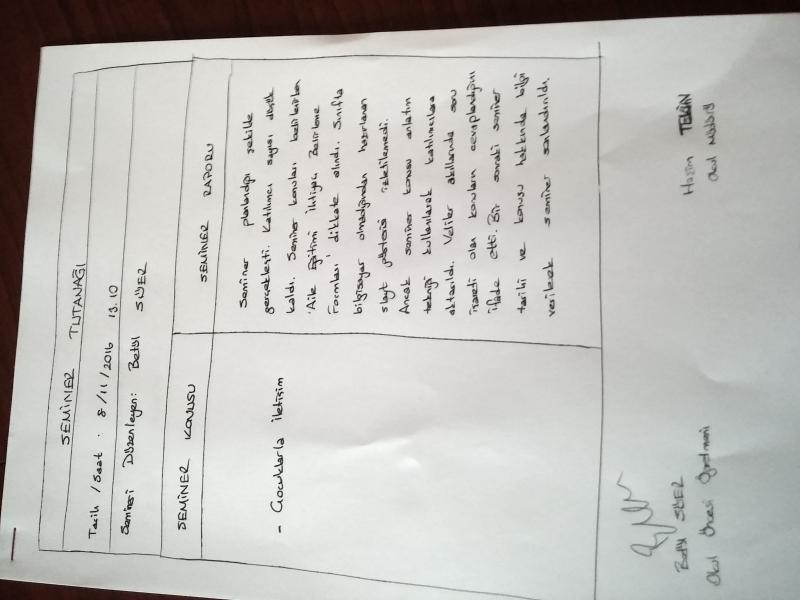 SEMİNER TUTANAĞI
Tarih / Saat : 8/11/2016 13.10
Semineri Düzenleyen: Betül SÜER
SEMİNER KONUSU
SEMİNER RAPORU
- Çocuklarla iletişim
Seminer planlandığı şekilde
gerçekleşti. Katılımcı sayısı düşük
kaldı. Seminer konuları belirlenirken
'Aile Eğitimi İhtiyacı Belirleme
Formları' dikkate alındı. Sınıfta
bilgisayar olmadığından hazırlanan
slayt gösterisi izletilemedi.
Ancak seminer konusu anlatım
tekniği kullanılarak katılımcılara
aktarıldı. Veliler akıllarında soru
işareti olan konuların cevaplandığını
ifade etti. Bir sonraki seminer
tarihi ve konusu hakkında bilgi
verilerek seminer sonlandırıldı.
Betül SÜER
Okul Öncesi Öğretmeni
Hazim TEKİN
Okul Müdürü